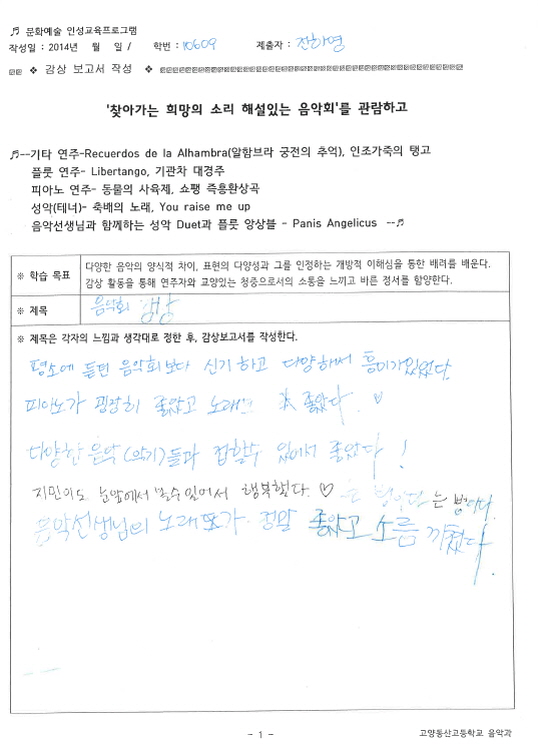 ♬ 문화예술 인성교육프로그램
작성일 : 2014년 월 일 / 학번 : 10609 제출자 : 전하영
❖ 감상 보고서 작성 ❖
'찾아가는 희망의 소리 해설있는 음악회'를 관람하고
♬--기타 연주-Recuerdos de la Alhambra(알함브라 궁전의 추억), 인조가죽의 탱고
플룻 연주- Libertango, 기관차 대경주
피아노 연주- 동물의 사육제, 쇼팽 즉흥환상곡
성악(테너)- 축배의 노래, You raise me up
음악선생님과 함께하는 성악 Duet과 플룻 앙상블 - Panis Angelicus --♬
※ 학습 목표
다양한 음악의 양식적 차이, 표현의 다양성과 그를 인정하는 개방적 이해심을 통한 배려를 배운다.
감상 활동을 통해 연주자와 교양있는 청중으로서의 소통을 느끼고 바른 정서를 함양한다.
※ 제목 음악회 감상
※ 제목은 각자의 느낌과 생각대로 정한 후, 감상보고서를 작성한다.
평소에 듣던 음악회보다 신기하고 다양해서 흥미가있었다.
피아노가 굉장히 좋았고 노래도 좋았다. ♡
다양한 음악 (악기)들과 접할수 있어서 좋았다!
지민이도 눈앞에서 볼수있어서 행복했다. ♡
음악선생님의 노래또가 정말 좋았고 소름 끼쳤다.
- 1 -
고양동산고등학교 음악과